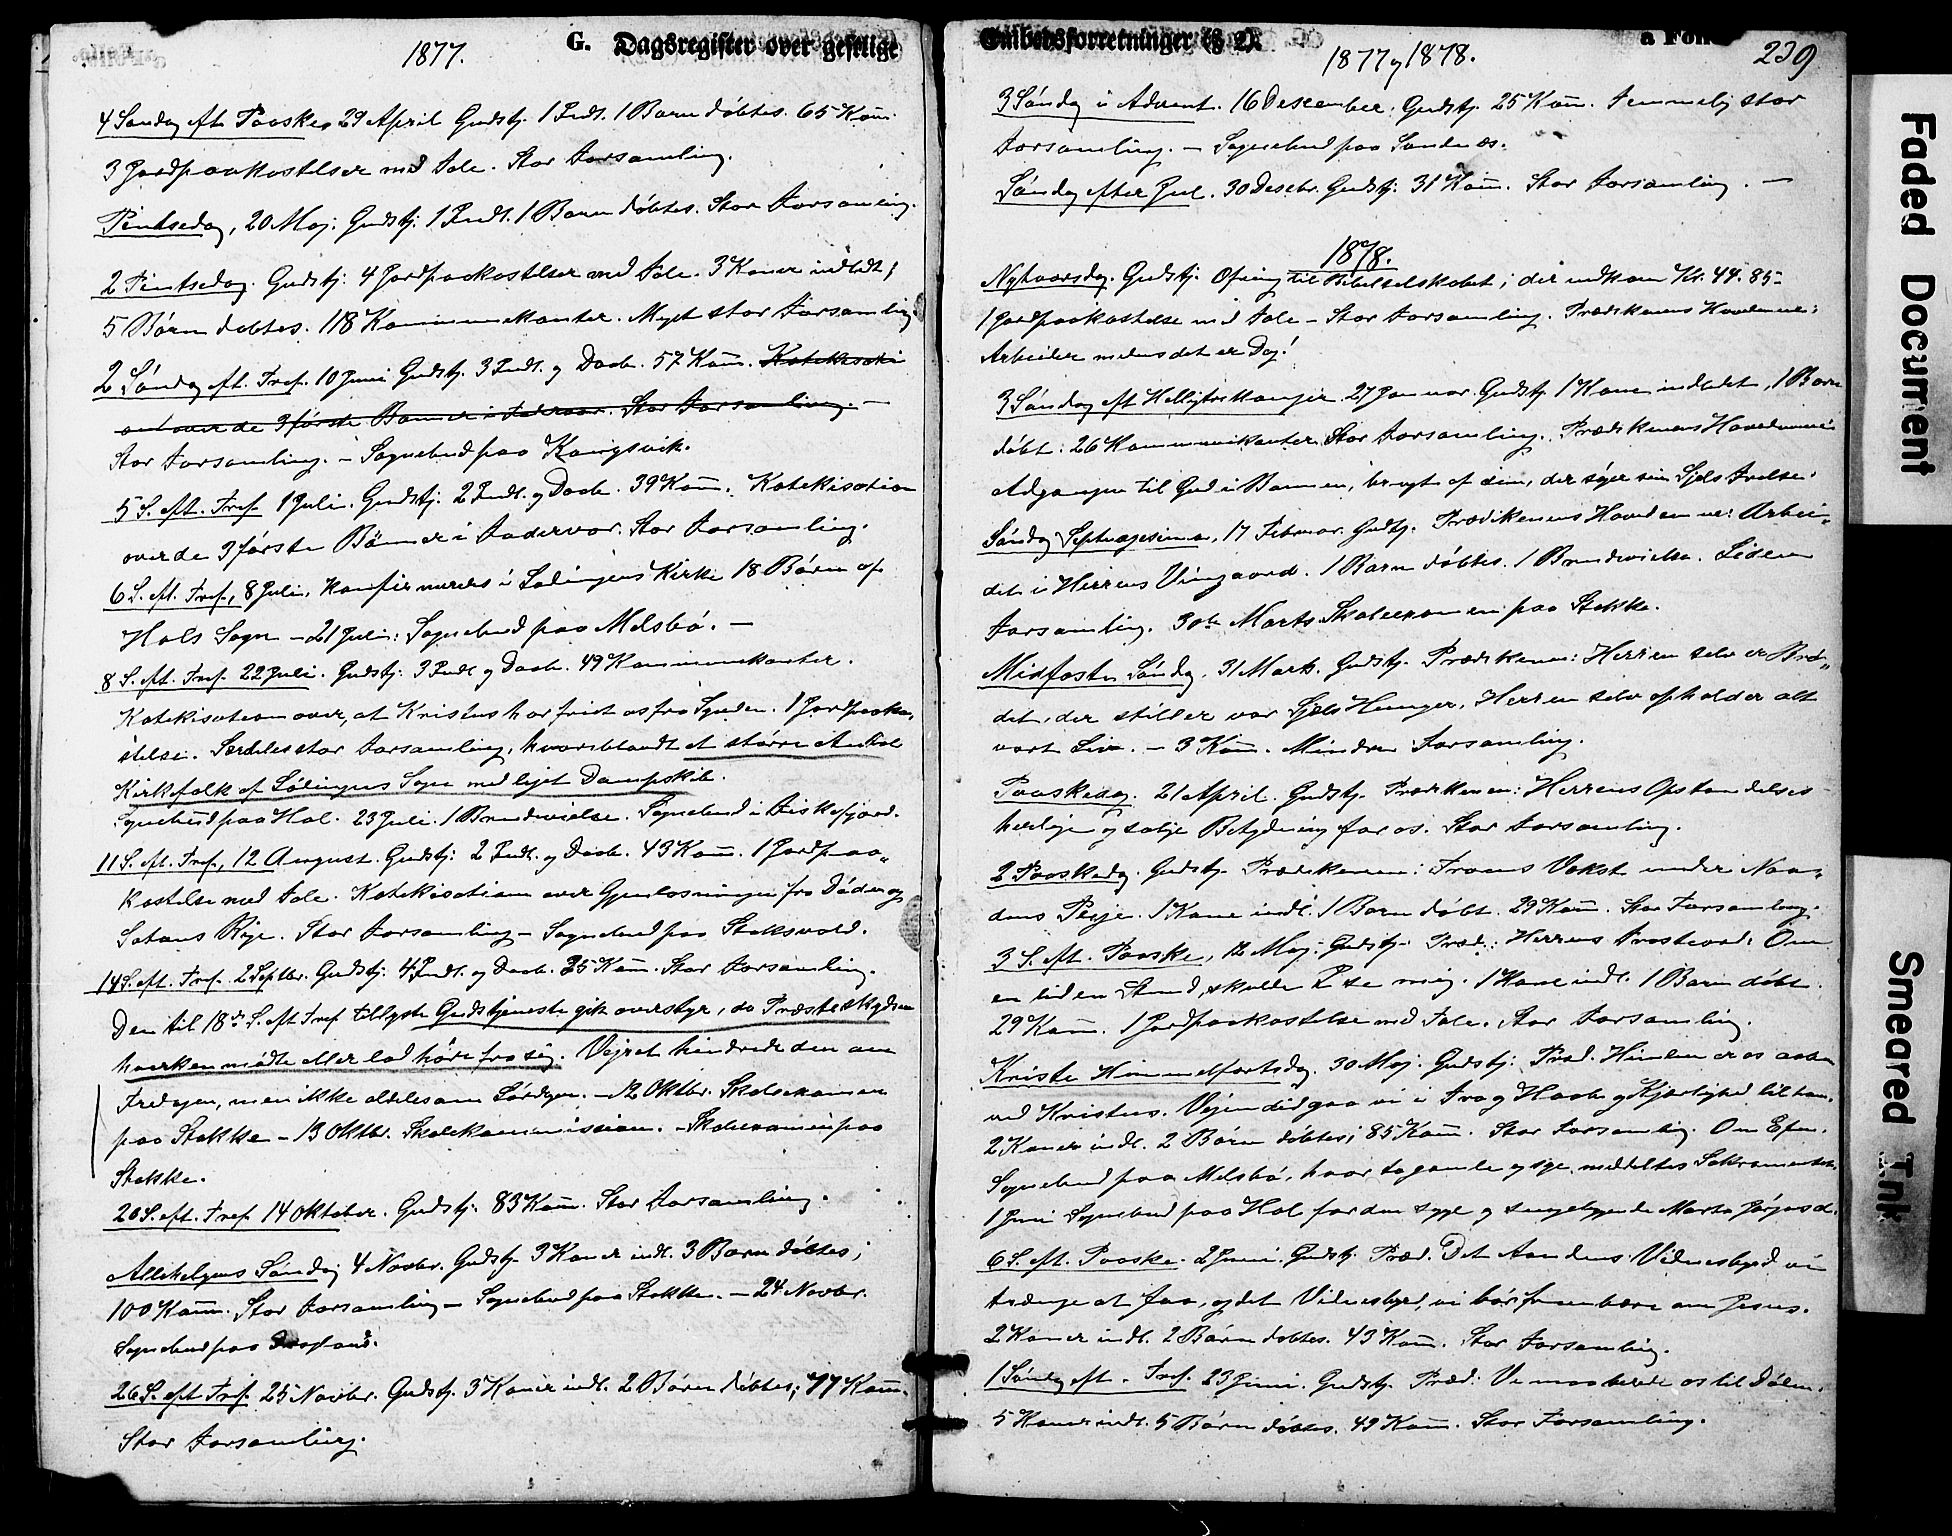 1877.
G. Dagsregister over gejstlige
4 Søndag eft. Paaske, 29 April Gudstj. 1 Indl. 1 Barn døbtes. 65 Kom.
3 Jordpaakastelser med Tale. Stor Forsamling.
Pintsedag, 20 Maj. Gudstj. 1 Indl. 1 Barn døbtes. Stor Forsamling.
2 Pintsedag. Gudstj. 4 Jordpaakastelser med Tale. 3 Koner indledt;
5 Børn døbtes. 118 Kommunikanter. Meget stor Forsamling.
2 Søndag eft. Tref. 10 Juni Gudstj. 3 Indl. og Daab. 57 Kom. Katekisati
on over de 3 første Bønner i Fadervor. Stor Forsamling. —
Stor Forsamling. — Sognebud paa Kongsvik.
5 S. eft. Tref. 1 Juli. Gudstj. 2 Indl. og Daab. 39 Kom. Katekisation
over de 3 første Bønner i Fadervor. Stor Forsamling.
6 S. eft. Tref., 8 Juli, konfirmeredes i Lødingens Kirke 18 Børn af
Hols Sogn — 21 Juli: Sognebud paa Melsbø. —
8 S. eft. Tref. 22 Juli. Gudstj. 3 Indl. og Daab. 49 Kommunikanter.
Katekisation over, at Kristus har friet os fra Synden. 1 Jordpaaka-
stelse. Særdeles stor Forsamling, hvoriblandt et større Antal
Kirkefolk af Lødingens Sogn med lejet Dampskib.
Sognebud paa Hol. 23 Juli. 1 Brudevielse. Sognebud i Fiskefjord.
11 S. eft. Tref., 12 August. Gudstj. 2 Indl. og Daab. 43 Kom. 1 Jordpaa-
kastelse med Tale. Katekisation over Gjenløsningen fra Døden og
Satans Rige. Stor Forsamling — Sognebud paa Stoksvold.
14 S. eft. Tref. 2 Septbr. Gudstj. 4 Indl. og Daab. 35 Kom. Stor Forsamling.
Den til 18de S. eft Tref tillyste Gudstjeneste gik overstyr, da Præsteskydsen
hverken mødte eller lod høre fra sig. Vejret hindrede den om
Fredagen, men ikke aldeles om Lørdagen. — 12 Oktbr. Skoleexamen
paa Stokke — 13 Oktbr. Skolekommission. — Skoleexamen paa
Stokke.
20 S. eft. Tref. 14 Oktober. Gudstj. 83 Kom. Stor Forsamling.
Allehelgens Søndag 4 Novbr. Gudstj. 3 Koner indl. 3 Børn døbtes;
100 Kom. Stor Forsamling — Sognebud paa Stokke. — 24 Novbr.
Sognebud paa
26 S. eft Tref. 25 Novbr. Gudstj. 3 Koner indl. 2 Børn døbtes; 77 Kom.
Stor Forsamling.
Embedsforretninger (§ 2).
a Foll
1877 og 1878.
239
3 Søndag i Advent. 16 Desember. Gudstj. 25 Kom. Temmelig stor
Forsamling. — Sognebud paa Sandnæs.
Søndag efter Jul. 30 Desebr. Gudstj. 31 Kom. Stor Forsamling. —
1878.
Nytaarsdag. Gudstj. Ofring til Bibelselskabet; der indkom Kr. 44.85.
1 Jordpaakastelse med Tale — Stor Forsamling. Prædikenens Hovedemne:
Arbeider medens det er Dag!
3 Søndag eft Helligtrekonger. 27 Januar. Gudstj. 1 Kone indledet, 1 Barn
døbt. 26 Kommunikanter. Stor Forsamling. Prædikenens Hovedemne:
Adgangen til Gud i Bønnen, brugt af dem, der søger sin Sjels Frelse.
Søndag Septuagesima, 17 Februar. Gudtj. Prædikenens Hovedemne: Arbei-
det i Herrens Vingaard. 1 Barn døbtes. 1 Brudevielse. Liden
Forsamling. 30te Marts Skoleexamen paa Stokke.
Midfaste Søndag. 31 Marts. Gudstj. Prædikenen: Herren selv er Brø-
det, der stiller vor Sjels Hunger, Herren selv opholder alt
vort Liv. — 3 Kom. Mindre Forsamling.
Paaskedag. 21 April. Gudstj. Prædikenen: Herrens Opstandelses
herlige og salige Betydning for os. Stor Forsamling.
2 Paaskedag. Gudstj. Prædikenen: Troens Vekst under Naa-
dens Pleje. 1 Kone indl. 1 Barn døbt. 29 Kom. Stor Forsamling.
3 S. eft. Paaske, 12 Maj. Gudstj. Præd.: Herrens Trosteord: Om
en liden Stund, skulle I se mig. 1 Kone indl. 1 Barn døbt.
29 Kom. 1 Jordpaakastelse med Tale. Stor Forsamling.
Kristi Himmelfartsdag. 30 Maj. Gudstj. Præd. Himlen er os aaben
ved Kristus. Vejen did gaa vi i Tro og Haab og Kjærlighed til ham.
2 Koner indl. 2 Børn døbtes; 85 Kom. Stor Forsamling. Om Eftm.
Sognebud paa Melsbø, hvor to gamle og syge meddeltes Sakramentet.
1 Juni Sognebud paa Hol for den syge og sengeliggende Marta Jørgensd.
6 S. eft. Paaske. 2 Juni. Gudstj. Præd. Det Aandens Vidnesbyrd vi
trænge at faa, og det Vidnesbyrd, vi bør frembære om Jesus.
2 Koner indl. 2 Børn døbtes. 43 Kom. Stor Forsamling.
1 Søndag eft. Tref. 23 Juni. Gudstj. Præd: Vi maa berede os til Døden.
5 Koner indl. 5 Børn døbtes. 49 Kom. Stor Forsamling.
Faded Document
Smeared Ink